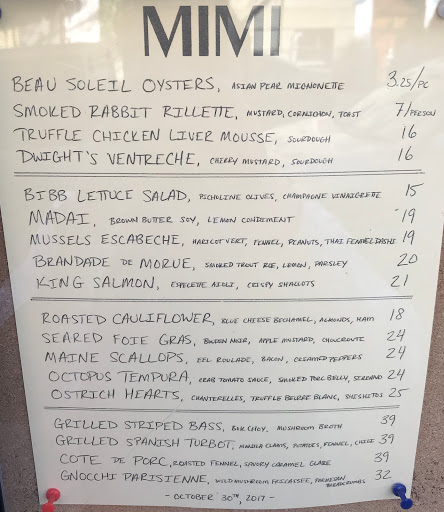 MIMI
BEAU SOLEIL OYSTERS, ASIAN PEAR MIGNONETTE 3.25/PC
SMOKED RABBIT RILLETTE, MUSTARD, CORNICHON, TOAST 7/PERSON
TRUFFLE CHICKEN LIVER MOUSSE, SOURDOUGH 16
DWIGHT'S VENTRECHE, CHERRY MUSTARD, SOURDOUGH 16
BIBB LETTUCE SALAD, PICHOLINE OLIVES, CHAMPAGNE VINAIGRETTE 15
MADAI, BROWN BUTTER SOY, LEMON CONDEMENT 19
MUSSELS ESCABECHE, HARICOT VERT, FENNEL, PEANUTS, THAI FENNEL DASHI 19
BRANDADE DE MORUE, SMOKED TROUT ROE, LEMON, PARSLEY 20
KING SALMON, ESPELETTE AIOLI, CRISPY SHALLOTS 21
ROASTED CAULIFLOWER, BLUE CHEESE BECHAMEL, ALMONDS, HAM 18
SEARED FOIE GRAS, BOUDIN NOIR, APPLE MUSTARD, CHOUCROUTE 24
MAINE SCALLOPS, EEL ROULADE, BACON, CREAMED PEPPERS 24
OCTOPUS TEMPURA, CRAB TOMATO SAUCE, SMOKED PORC BELLY, SERRANO 24
OSTRICH HEARTS, CHANTERELLES, TRUFFLE BEURRE BLANC, SHISHITOS 25
GRILLED STRIPED BASS, BOK CHOY, MUSHROOM BROTH 39
GRILLED SPANISH TURBOT, MANILA CLAMS, POTATOES, FENNEL, CHILI 39
COTE DE PORC, ROASTED FENNEL, SAVORY CARAMEL GLAZE 39
GNOCCHI PARISIENNE, WILD MUSHROOM FRICASSEE, PARMESAN BREADCRUMBS 32
- OCTOBER 30TH, 2017 -